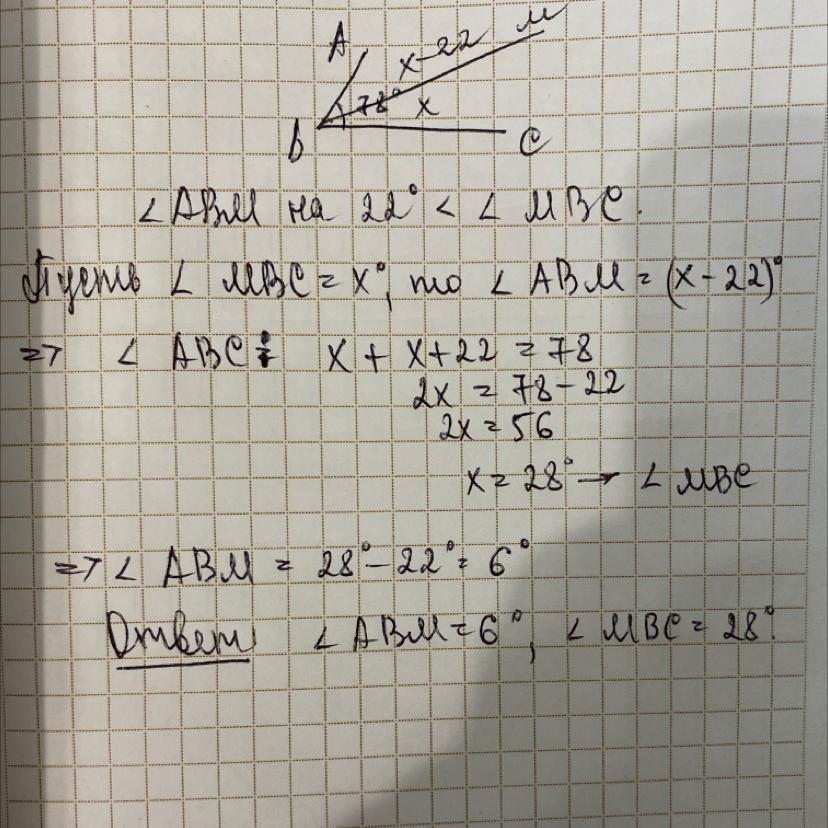 A
x-22
M
78°
x
B
C
∠ABM на 22° < ∠ MBC.
Пусть ∠ MBC = x°, то ∠ ABM = (x-22)°
=> ∠ ABC: x + x+22 = 78
2x = 78-22
2x = 56
x = 28° → ∠ MBC
=> ∠ ABM = 28°-22° = 6°
Ответ ∠ABM = 6°, ∠ MBC = 28°.